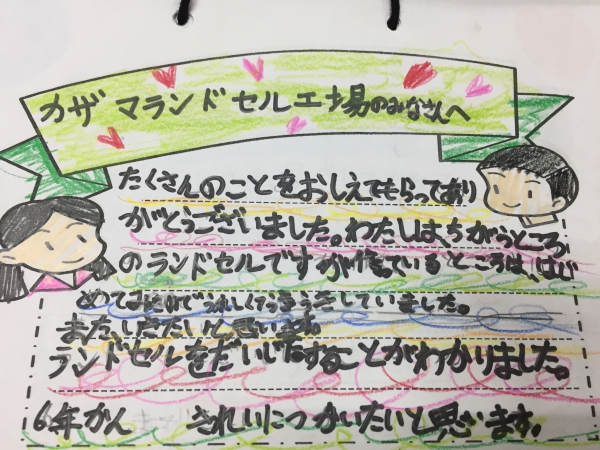 カザマランドセル工場のみなさんへ
たくさんのことをおしえてもらってあり
がとうございました。わたしは、ちがうところ
のランドセルですが作っているところは、はじ
めて していました。
また、 たいと思います。
ランドセルをだいじにすることがわかりました。
6年かん きれいにつかいたいと思います。